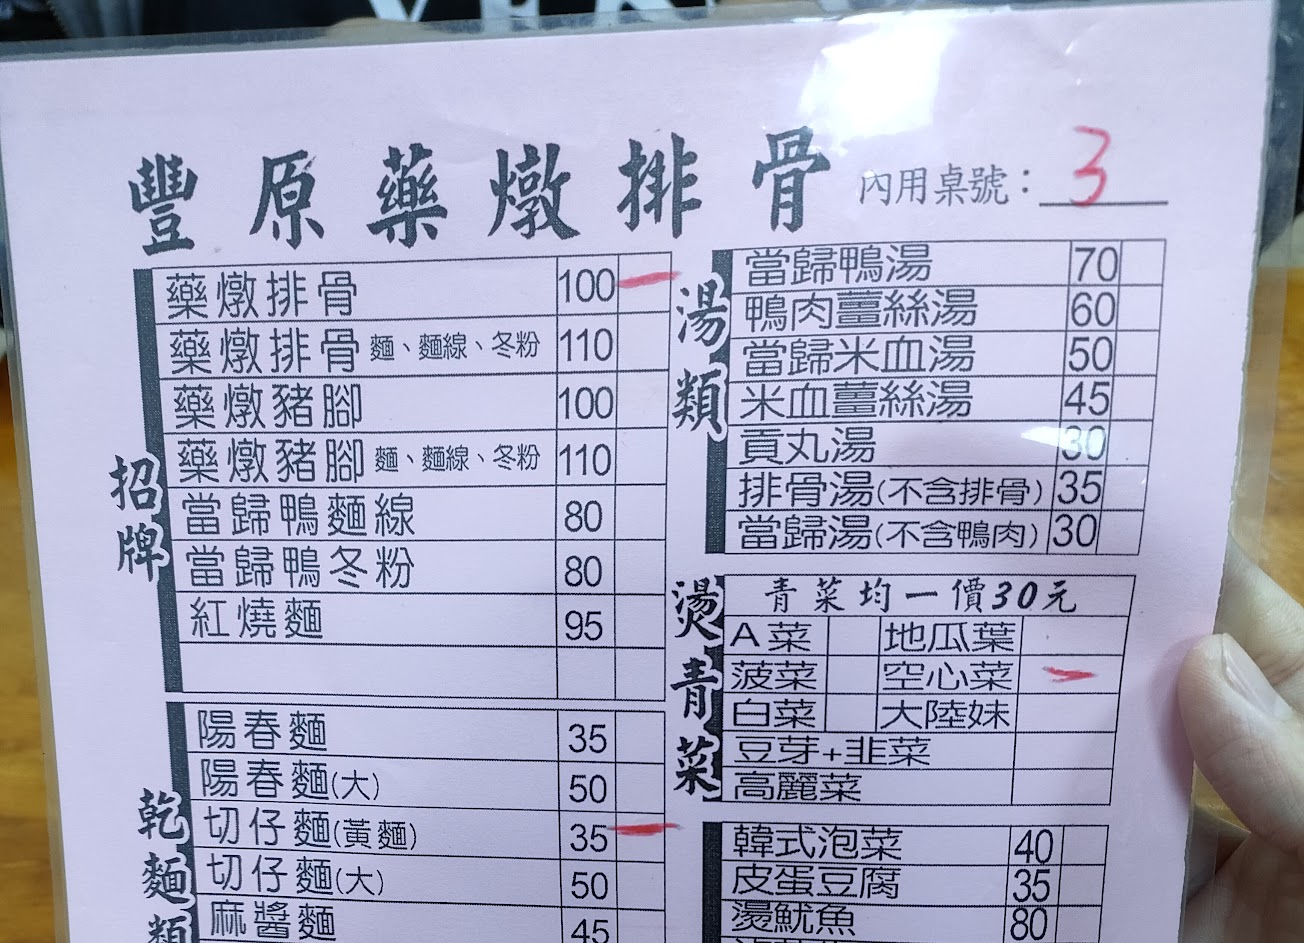 豐原藥燉排骨 內用桌號：3
招牌
藥燉排骨 100
藥燉排骨 麵、麵線、冬粉 110
藥燉豬腳 100
藥燉豬腳 麵、麵線、冬粉 110
當歸鴨麵線 80
當歸鴨冬粉 80
紅燒麵 95
乾麵類
陽春麵 35
陽春麵(大) 50
切仔麵(黃麵) 35
切仔麵(大) 50
麻醬麵 45
湯類
當歸鴨湯 70
鴨肉薑絲湯 60
當歸米血湯 50
米血薑絲湯 45
貢丸湯 30
排骨湯(不含排骨) 35
當歸湯(不含鴨肉) 30
燙青菜
青菜均一價30元
A菜 地瓜葉
菠菜 空心菜
白菜 大陸妹
豆芽+韭菜
高麗菜
韓式泡菜 40
皮蛋豆腐 35
燙魷魚 80